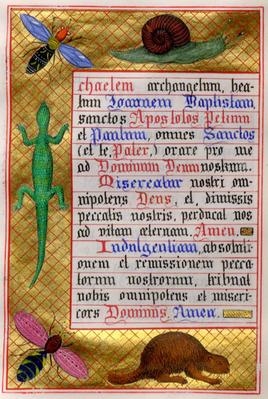 chaelem archangelum, bea-
tum Joannem Baptistam,
sanctos Apostolos Petrum
et Paulum, omnes Sanctos
(et te, Pater,) orare pro me
ad Dominum Deum nostrum.
Misereatur nostri om-
nipotens Deus, et, dimissis
peccatis nostris, perducat nos
ad vitam aeternam. Amen.
Indulgentiam, absoluti-
onem et remissionem pecca-
torum nostrorum, tribuat
nobis omnipotens et miseri-
cors Dominus. Amen.